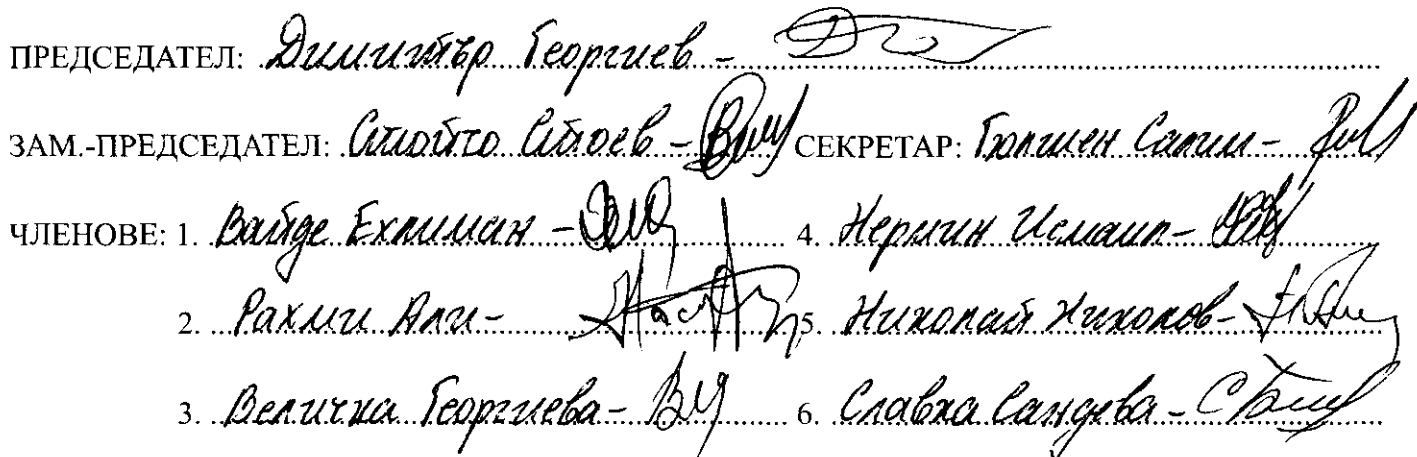 ПРЕДСЕДАТЕЛ: Димитър Георгиев -
ЗАМ.-ПРЕДСЕДАТЕЛ: Стойчо Стоев - СЕКРЕТАР: Гюлшен Салим -
ЧЛЕНОВЕ: 1. Вайде Ехлиман - 4. Нермин Исмаил -
2. Рахми Али - 5. Николай Николов -
3. Величка Георгиева - 6. Славка Сандева -